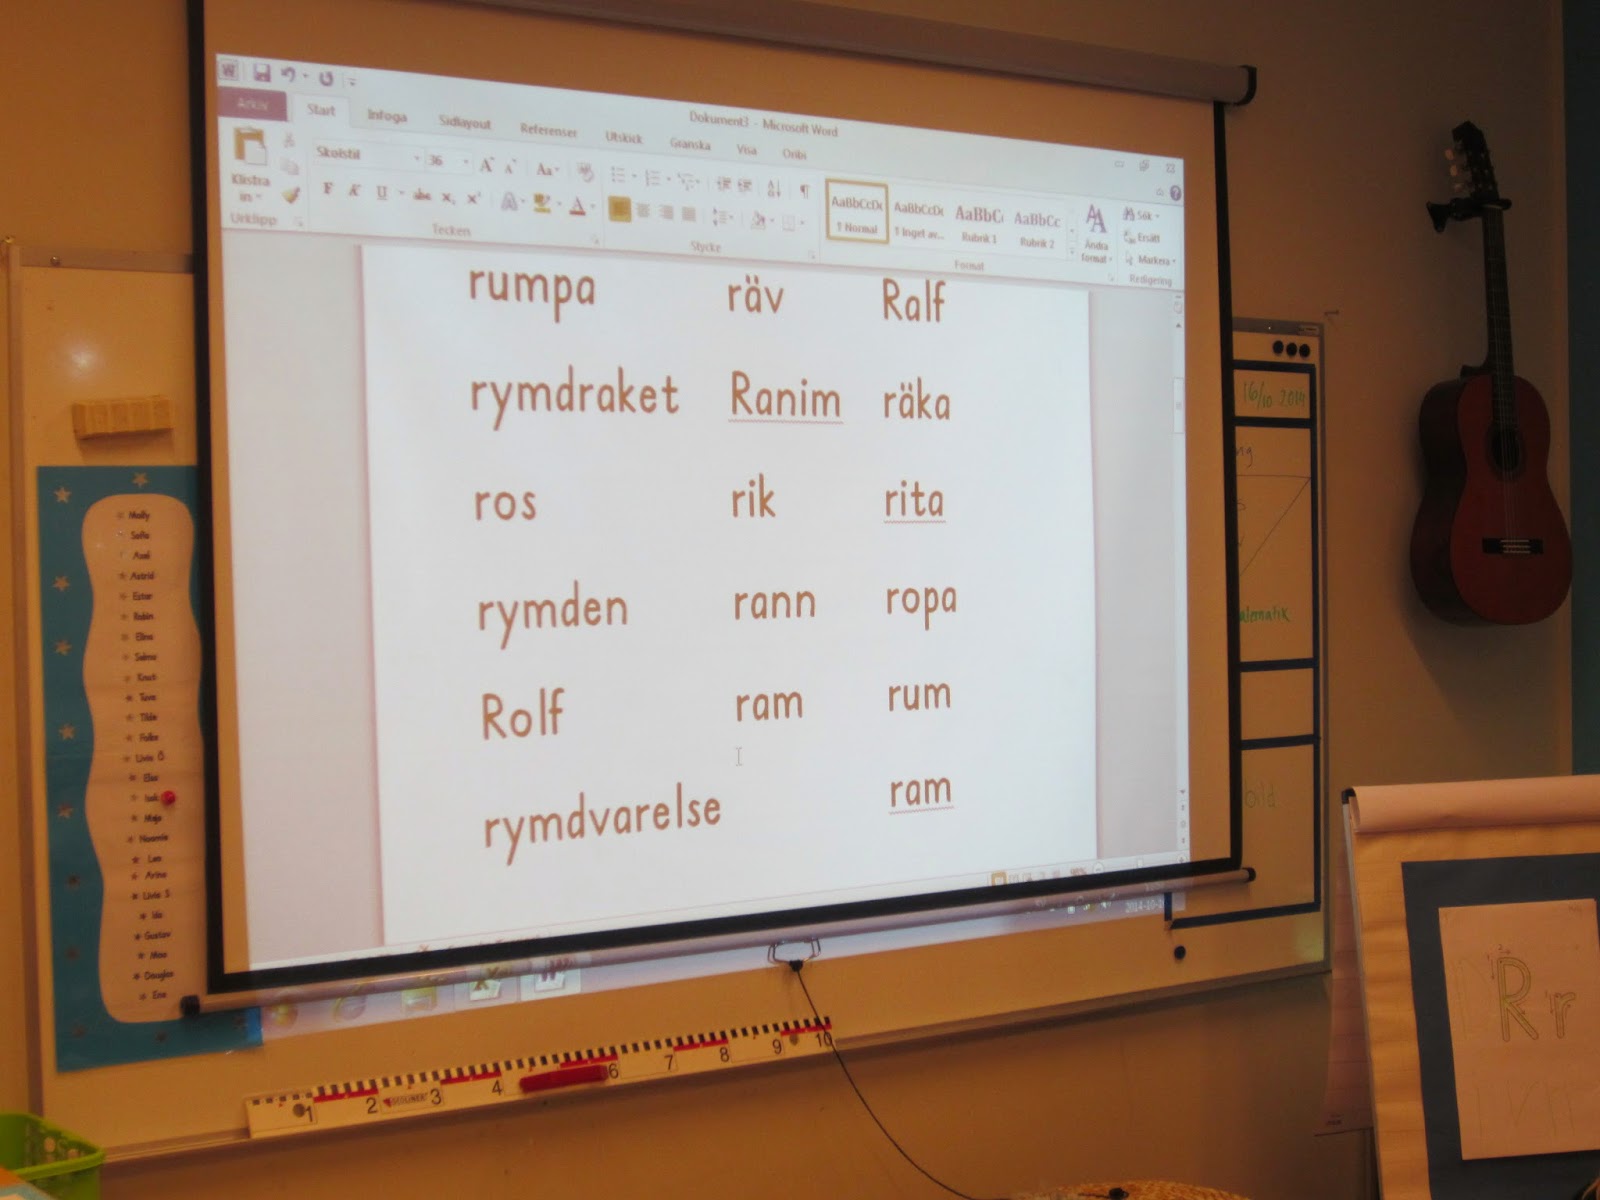 Dokument3 - Microsoft Word
Arkiv Start Infoga Sidlayout Referenser Utskick Granska Visa
Klistra in
Skolstil 36
F K U abc x₂ x² A Aa
AaBbCcDc AaBbCcDc AaBbC AaBbCc
¶ Normal ¶ Inget av... Rubrik 1 Rubrik 2
Ändra format
Sök
Ersätt
Markera
Urklipp Tecken Stycke Format Redigering
rumpa räv Ralf
rymdraket Ranim räka
ros rik rita
rymden rann ropa
Rolf ram rum
rymdvarelse ram
90%
Molly
Sofia
Axel
Astrid
Ester
Robin
Elina
Selma
Knut
Tuva
Tilde
Folke
Livia Ö
Elsa
Isak
Maja
Noomie
Leo
Arina
Livia S
Ida
Gustav
Moa
Douglas
Ena
16/10 2014
bild
1 2 3 4 6 7 8 9 10
R r